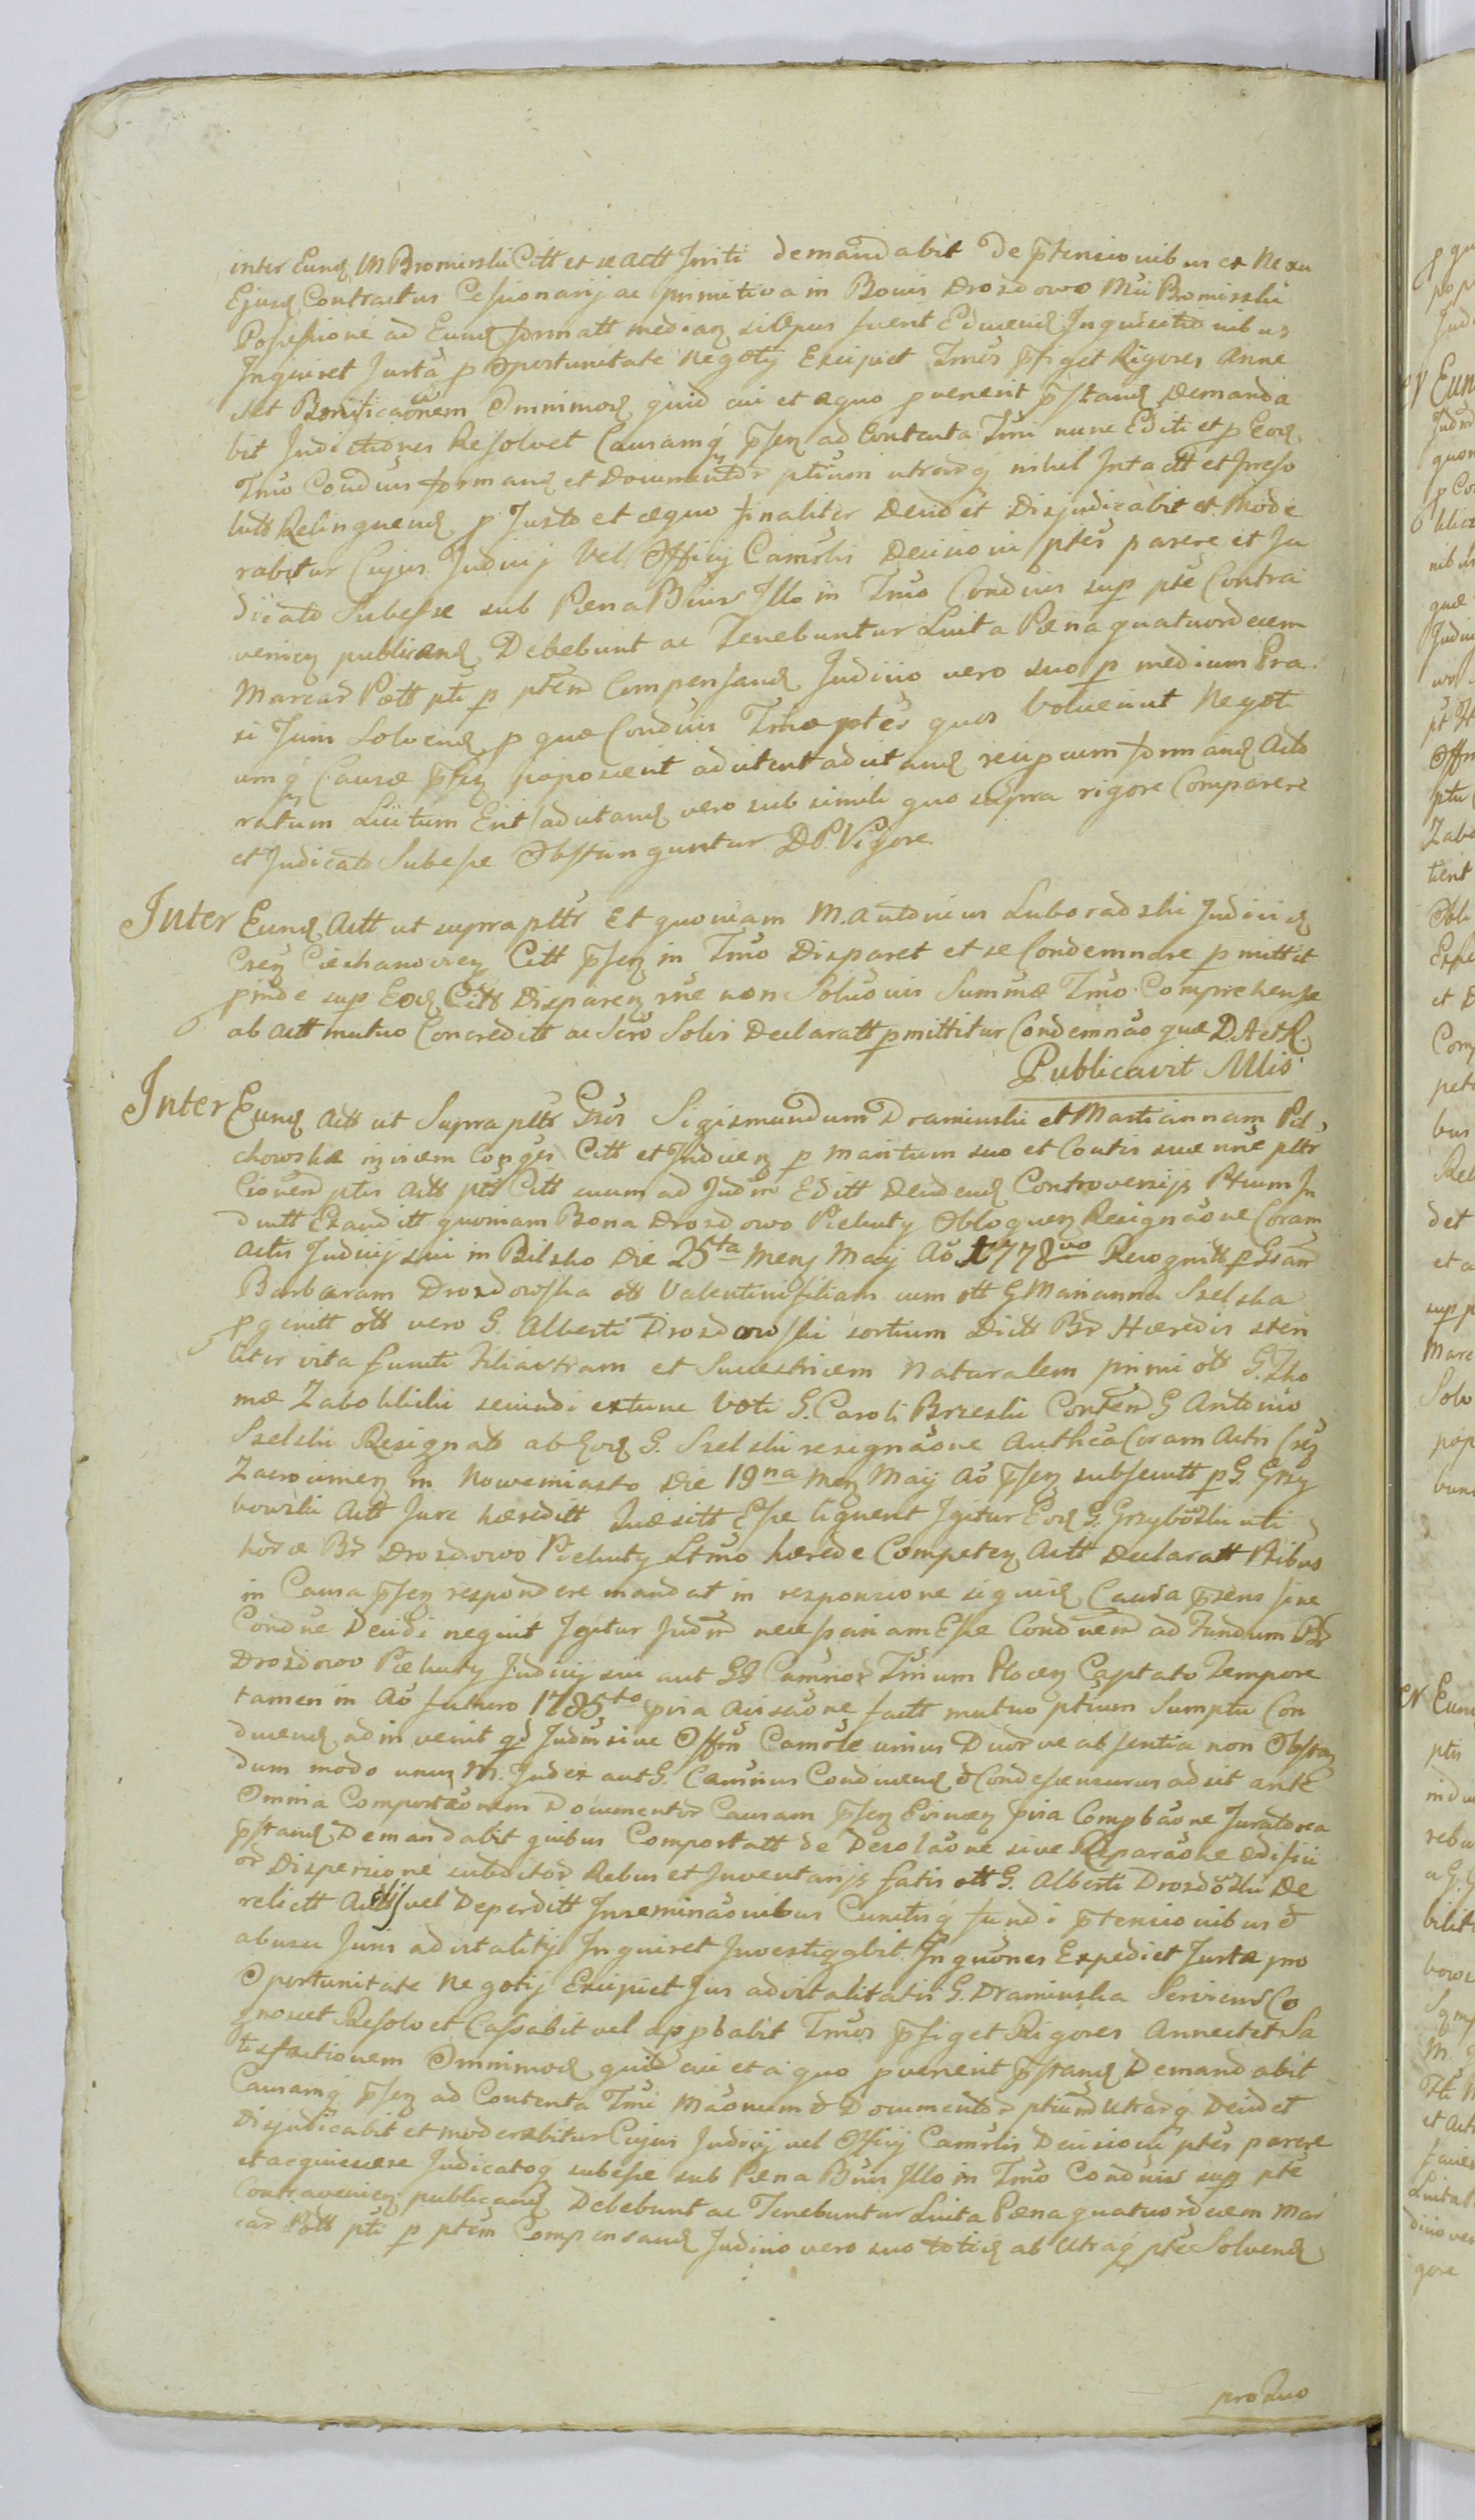 inter Eund M Bromirski Citt et se Actt Initi demandabit De ptensionibus et Nexu
Ejusd Contractus Cessionarij ac primitiva in Bonis Drozdowo Mci Bromirski
Possessione ad Eund formatt median silipsus fuerit Educend Inquisitionibus
Inquiret Jurta p Oportunitate Negotij Excipiet Tmos pfiget Rigores Anne
ctet Bonificaonem Omnimod quid cui et a quo pvenerit pstand Demanda
bit Judictiones Resolvet Causamq psen ad Contenta Tmi nunc Editi et p Eod
Tmo Condnis formand et Documentor ptium utrarq nihil Intactt et Irreso
lutt Relinquend p Justo et aequo finaliter Decidet Disjudicabit et Mode
rabitur Cujus Judicij Vel Officij Camrlis Decisioni ptes parere et Ju
dicato Subesse sub Paena Bnis Illo in Tmo Condnis sup pte Contra
venien publicand Debebunt ac Tenebuntur Luita Paena quatuordecem
Marcar Pott pti p ptem Compensand Judicio vero suo p medium Pra
si Juris Solvend p quae Condnis Tma ptes quos Voluerint Negoti
umq Causae psen poposcerit ad citent ad citand recipcum formand Acto
ratum Licitum Erit ad citand vero sub simili quo supra rigore Comparere
et Judicato Subesse Obstringuntur D.P. Vigore
Inter Eund Actt ut supra pltt Et quoniam M. Antonius Luboradzki Judicid
Csen Ciechanovien Citt psen in Tmo Disparet et se Condemnare pmittit
pinde sup Eod Citt Disparen rne non Soluois Summae Tmo Comprehensae
ab Actt mutuo Concreditt ac Sero Solvi Declaratt pmittitur Condemnao quae D. Act R.
Publicavit Mlis
Inter Eund Actt ut Supra pltt Gsos Sigismundum Draminski et Mariannam Pil
chowska invicem Conges Citt et Judicen p maritum suo et Contis suae nne pltt
Ciouend ptis Actt pts Citt cuum ad Judm Editt Deidend Controversijs Ptium In
ductt Exauditt quoniam Bona Drozdowo Piekuty Obloquen Resignaone Coram
Actis Judicij sui in Bilsko Die 25ta Mens Maij Ao 1778vo Recognitt p Gsam
Barbaram Drozdowska ott Valentini filiam cum ott G Marianna Szelska
pgenitt ott vero G. Alberti Drozdowski sortium Dictt Br Haeredis steri
liter vita functi filiastram et Sucestricem Naturalem primi ott G. Tho
mae Zabokliki secundi extunc Voti G. Caroli Brzeski Conten G Antonio
Szelski Resignato ab Eod G. Szelski resignaone Authca Coram Actis Csen
Zacrocimen in Nowemiasto Die 19na Men Maij Ao psen subsecutt p G. Grzy
bowski Actt Jure haereditt Quaesitt Esse liquent Igitur Eod G. Grzybowski uti
hor a Br Drozdowo Piekuty Ltmo haerede Competen Actt Declaratt Ptibus
in Causa psen respondere mandat in responsione siquid Causa psens sine
Condne Decidi nequit Igitur Judm necessariam Esse Condnem ad Fundum Br
Drozdowo Piekuty Judicij sui aut GG Camrior Tmum Plocen Captato Tempore
tamen in Ao futuro 1785to pvia Avisaone factt mutuo ptium Sumptu Con
ducend ad invenit qd Judm sive Offm Camrle unius Duor ve absentia non Obstan
dum modo unus M. Judex aut G. Camrius Conducend & Condescensurus adsit ante
Omnia Comportaonem Documentor Causam psen Coincen pvia Compbaone Juratorea
pstand Demandabit quibus Comportatt de Desolaone sive Reparaone aedifici
or Dispersione subditor Rebus et Inventarijs fatis ott G. Alberti Drozdoski De
relictt Actis vel Deperditt Inseminaonibus Cunctisq fundi ptensionibus &
abusu Juris advitalitij Inquiret Investigabit Inquones Expediet Jurta pro
Oportunitate Negotij Excipiet Jus advitalitatis G. Draminska Serviens Co
gnoscet Resolvet Cassabit vel appbabit Tmos pfiget Rigores Annectet Sa
tisfactionem Omnimod quid cui et a quo pvenerit pstand Demandabit
Causamq psen ad Contenta Tmi Maonum & Documentor ptium Utrarq Decidet
Disjudicabit et moderabitur Cujus Judicij vel Officij Camrlis Decisioni ptes parere
et acquiescere Judicatoq subesse sub Paena Bnis Illo in Tmo Condnis sup pte
Contravenien publicand Debebunt ac Tenebuntur Luita Paena quatuordecem Mar
car Pott pti p ptem Compensand Judicio vero suo totid ab Utraq pte Solvend
pro Quo